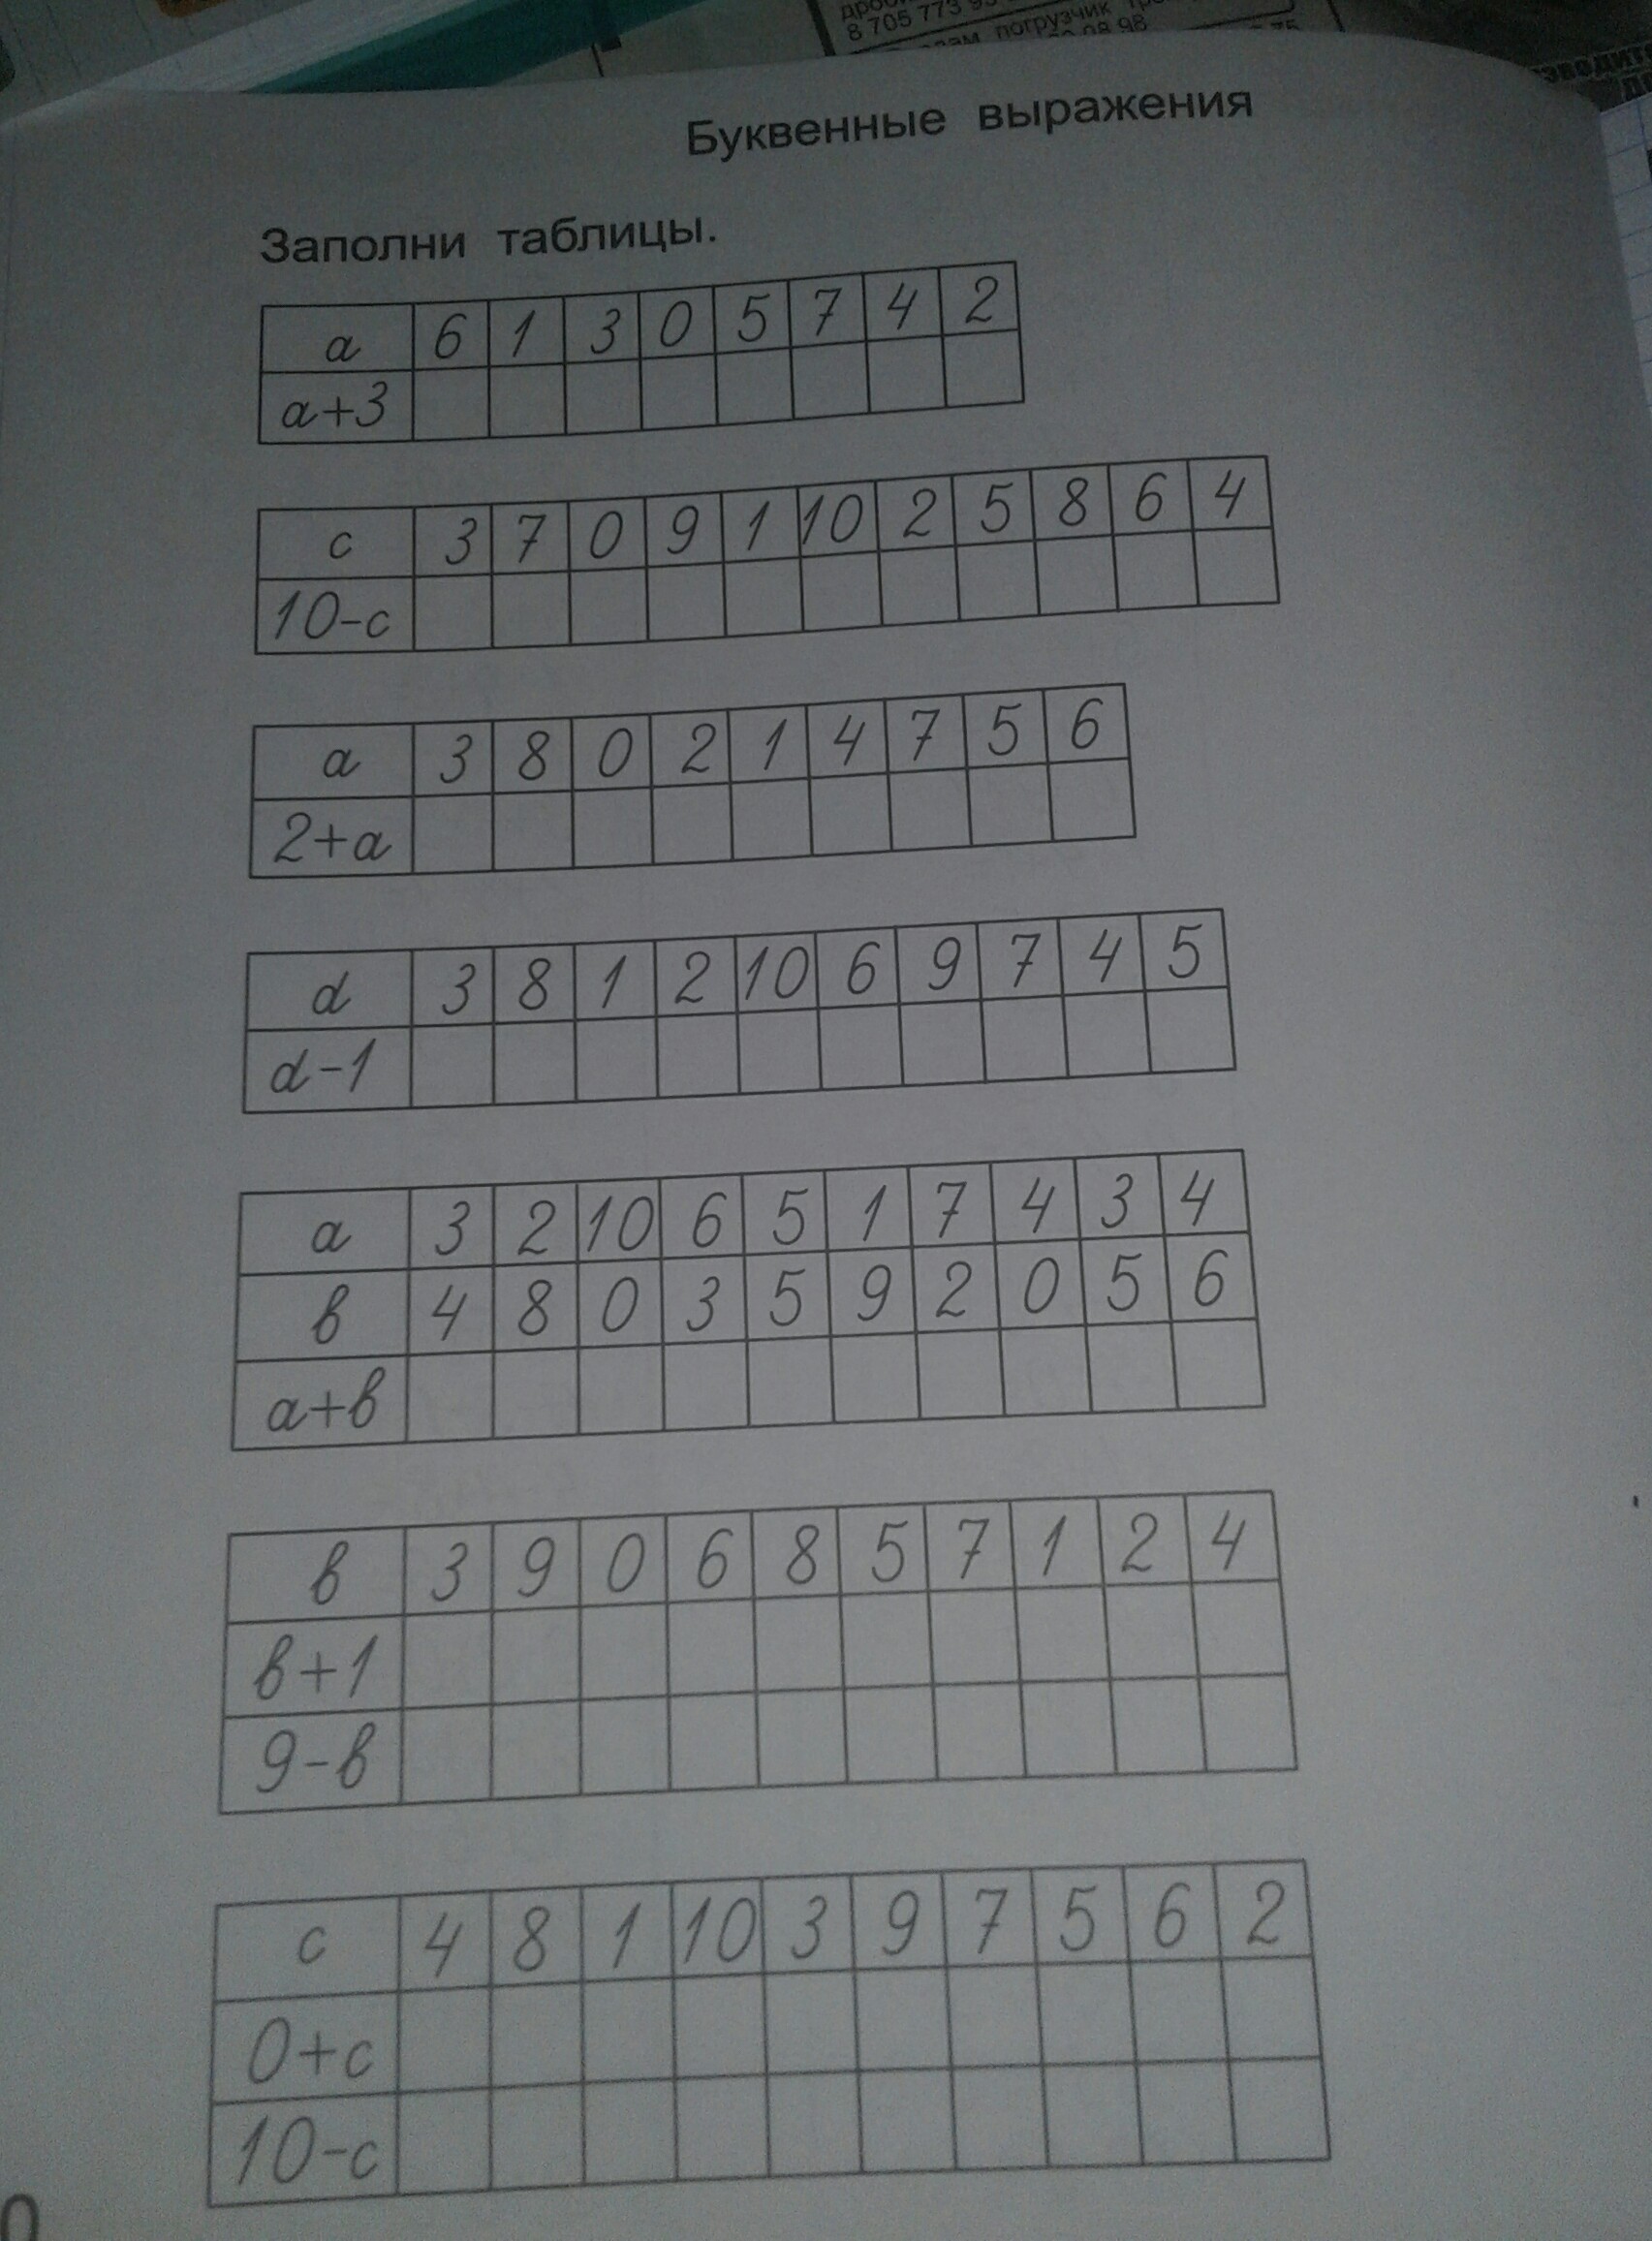 8 705 773
погрузчик
08 98
Буквенные выражения
Заполни таблицы.
a 6 1 3 0 5 7 4 2
a+3
c 3 7 0 9 1 10 2 5 8 6 4
10-c
a 3 8 0 2 1 4 7 5 6
2+a
d 3 8 1 2 10 6 9 7 4 5
d-1
a 3 2 10 6 5 1 7 4 3 4
в 4 8 0 3 5 9 2 0 5 6
a+в
в 3 9 0 6 8 5 7 1 2 4
в+1
9-в
c 4 8 1 10 3 9 7 5 6 2
0+c
10-c